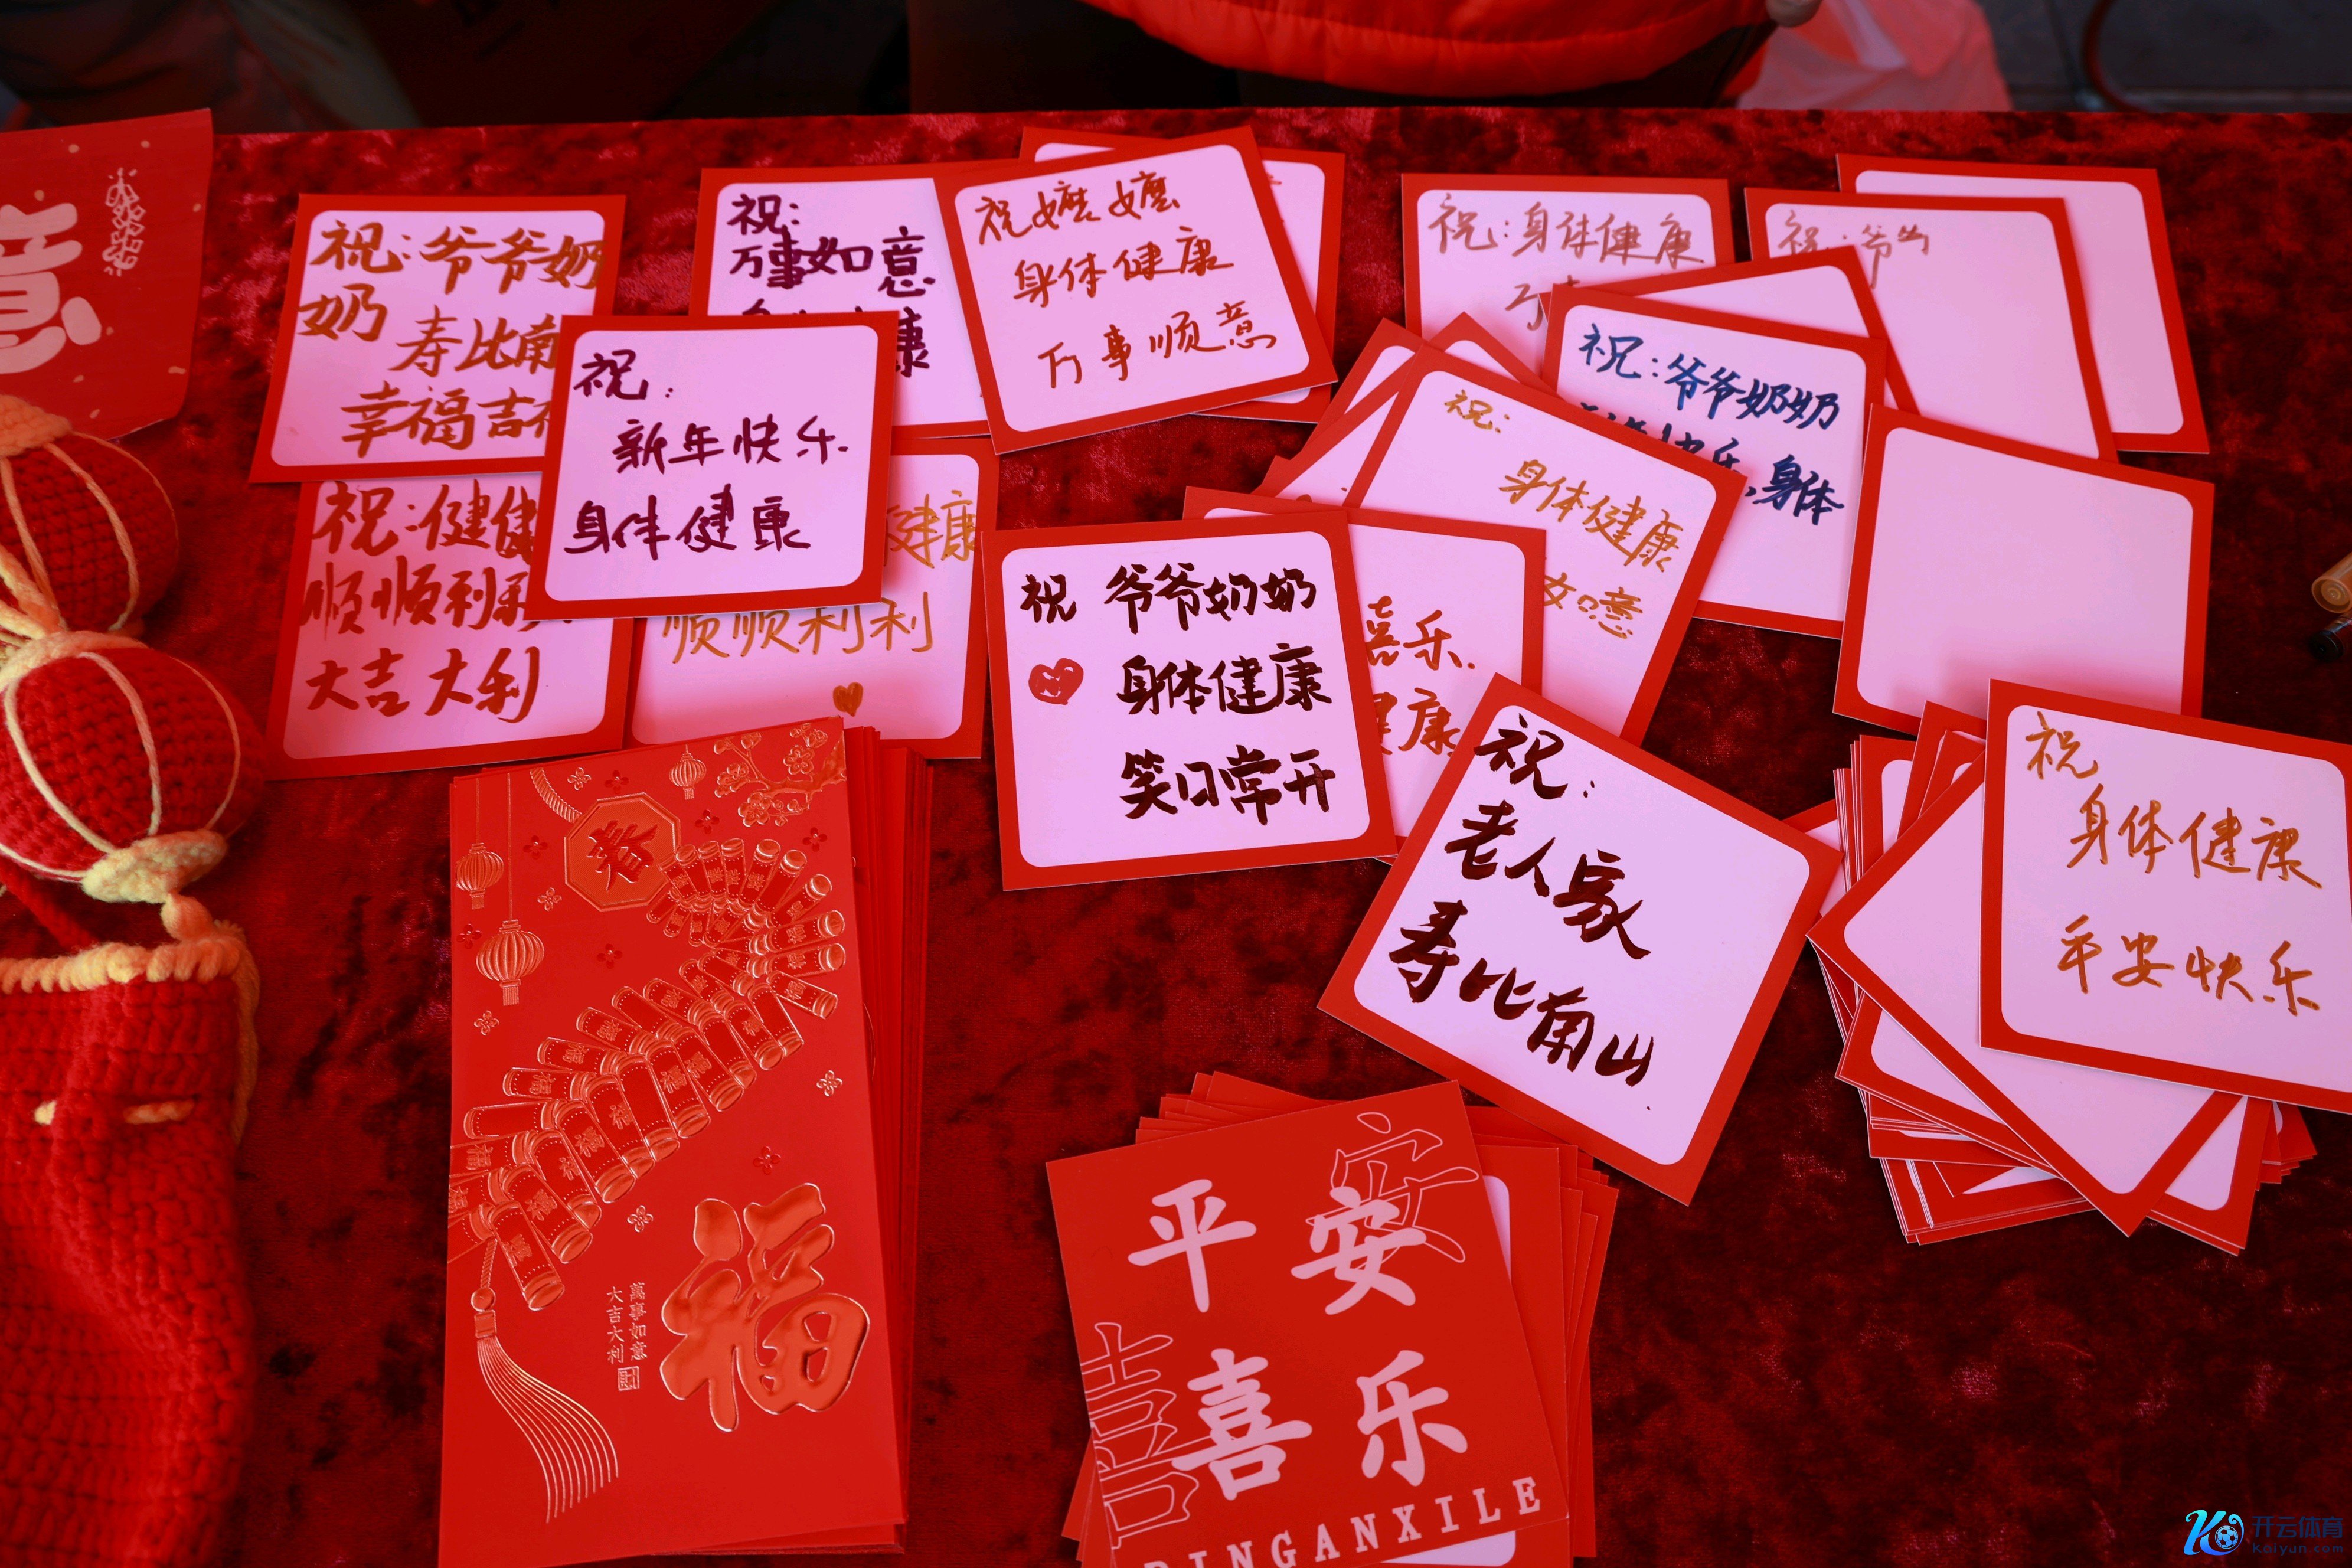 意
祝:爷爷奶
奶
寿比南
幸福吉
祝:
万事如意
康
祝嬷嬷
身体健康
万事顺意
祝:身体健康
祝:爷
祝:
新年快乐.
身体健康
祝:健健
顺顺利利
大吉大利
健康
顺顺利利
祝:爷爷奶奶
快乐,身体
祝:
身体健康
如意
祝 爷爷奶奶
身体健康
笑口常开
喜乐.
健康
祝:
老人家
寿比南山
祝
身体健康
平安快乐
春
福
萬事如意
大吉大利
平安
喜乐
PINGANXILE
开云体育
kaiyun.com